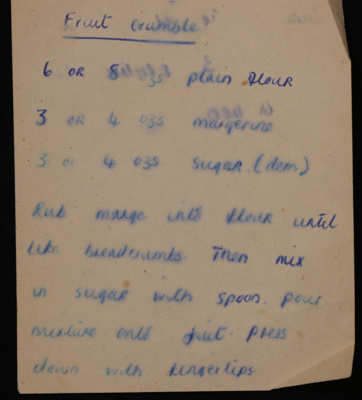 Fruit crumble
6 OR 8 ozs plain flour
3 OR 4 ozs margerine
3 or 4 ozs sugar (dem)
Rub marge into flour until
like breadcrumbs. Then mix
in sugar with spoon. pour
mixture onto fruit. Press
down with fingertips